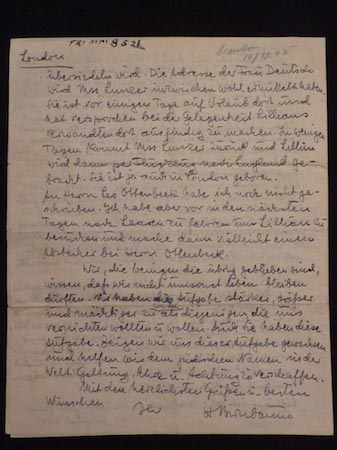 London
übersiedeln wird. Die Adresse der Frau Deutsch
wird Mrs inzwischen wohl ermittelt haben.
Sie ist vor einigen Tage auf Urlaub dort und
hat versprochen bei der Gelegenheit Lillians
Verwandten dort ausfindig zu machen. In wenigen
Tagen kommt Mrs zurück und Lillian
wird dann per Flugzeug nach England ge-
bracht. Sie ist ja auch in London geboren.
An Herrn Leo Offenbeck habe ich noch nicht ge-
schrieben. Ich habe aber vor in den nächsten
Tagen nach zu fahren um Lillian zu
besuchen und mache dann vielleicht einen
Abstecher bei Herrn Offenbeck.
Wir, die wenigen die übrig geblieben sind,
wissen, dass wir nicht umsonst leben bleiben
durften. Wir haben die Aufgabe stärker, größer
und mächtiger zu als diejenigen die uns
vernichten wollten u wollen. Auch Sie haben diese
Aufgabe. Zeigen wir uns dieser Aufgabe gewachsen
und helfen wir dem jüdischen Namen in der
Welt Geltung, Ehre u. Achtung zu verschaffen.
Mit den herzlichsten Grüßen u. besten
Wünschen Ihr